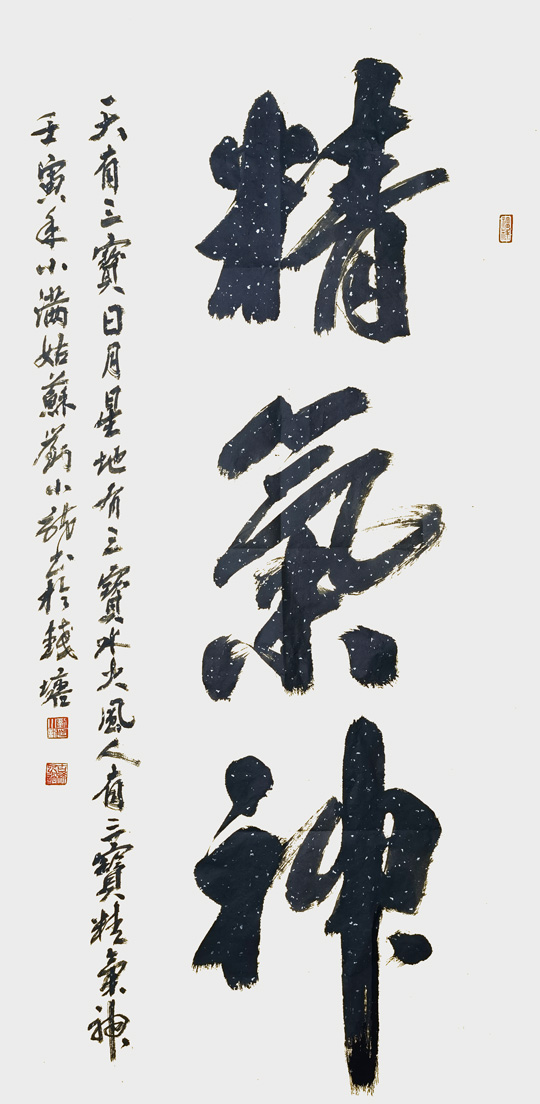 精氣神
天有三寶日月星地有三寶水火風人有三寶精氣神
壬寅年小滿姑蘇劉小龍书於錢塘